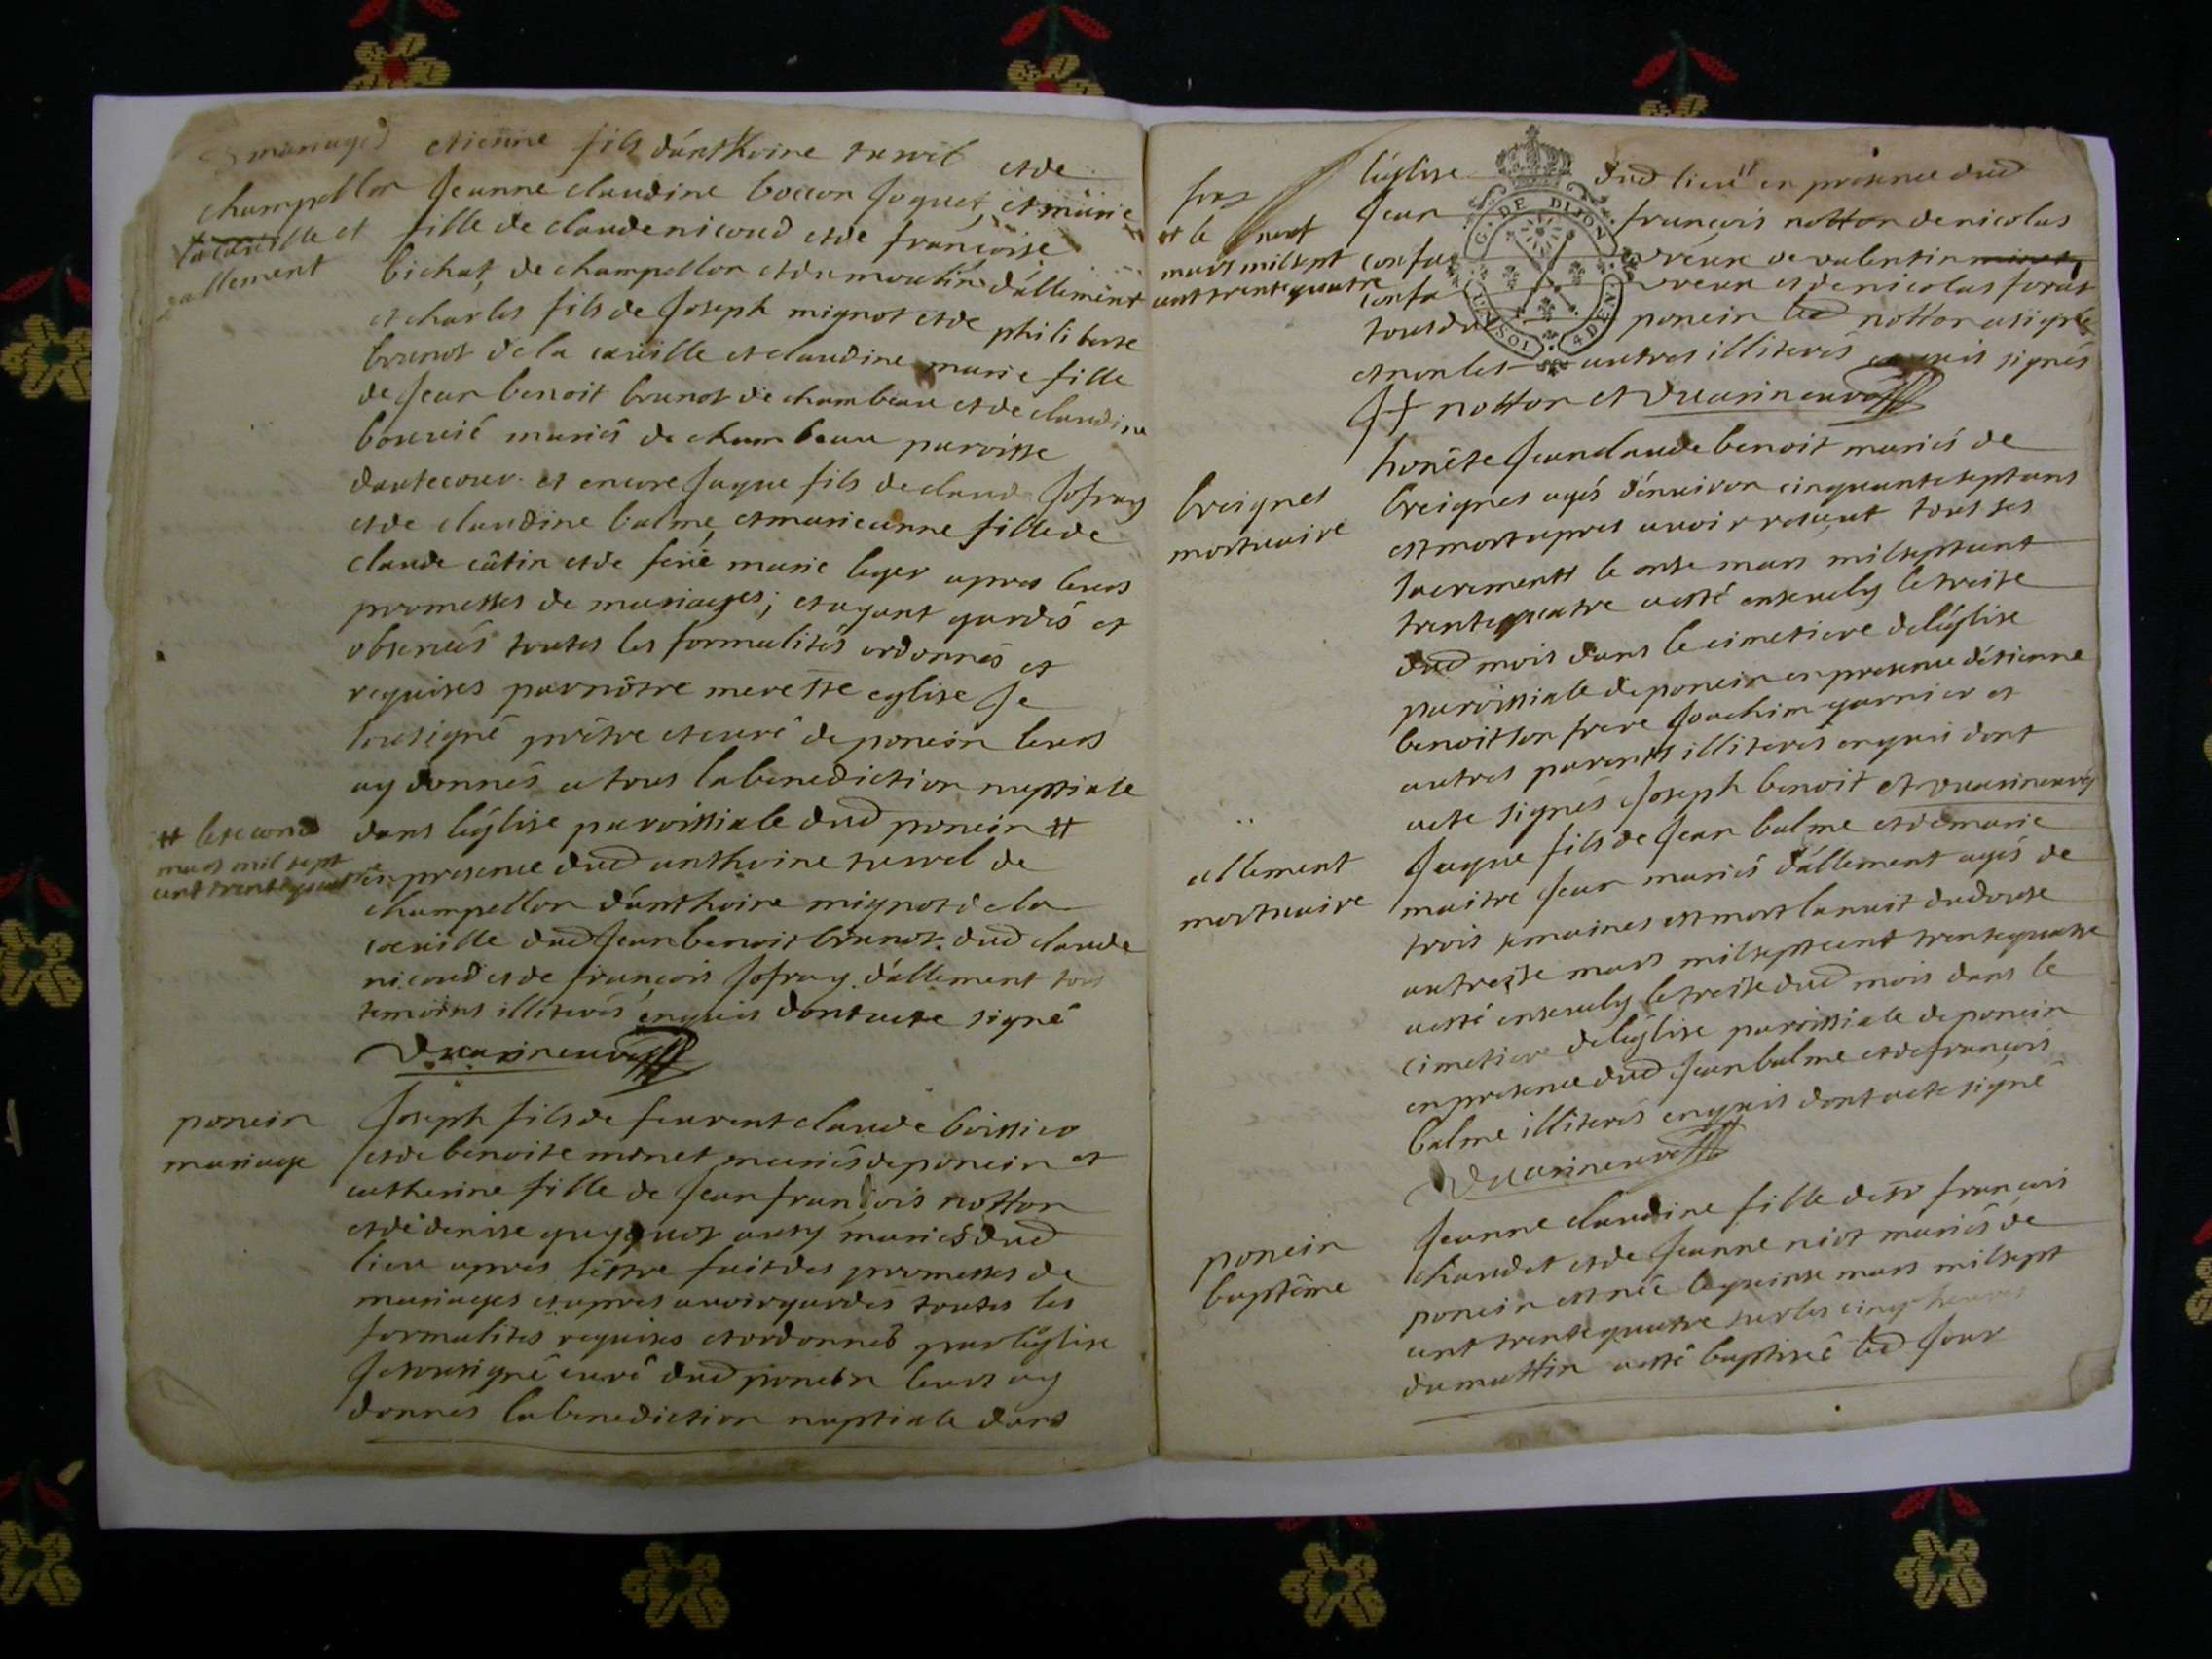 3 mariages
champollon
la cueille et
allement
etienne fils d'anthoine ravet et de
Jeanne claudine boccon Joguet, et marie
fille de claude nicoud et de francoise
bichat, de champollon et du moulin d'allement
et charles fils de Joseph mignot et de philiberte
brunot de la cueille et claudine marie fille
de Jean benoit brunot de chambeau et de claudine
bouvié mariés de chambeau paroisse
dautecour et encore Jaque fils de claude Jofray
et de claudine balme, et marieanne fille de
claude câtin et de feüe marie leger apres leurs
promesses de mariages; et ayant gardés et
observés toutes les formalités ordonnés et
requises par nôtre mere ste eglise Je
sousigné prêtre et curé de poncin leurs
ay donnés a tous la benediction nuptiale
dans léglise paroissiale dud poncin #
# le second
mars mil sept
cent trente quatre
en presence dud anthoine ravet de
champollon d'anthoine mignot de la
cueille dud Jean benoit brunot. dud claude
nicoud et de françois Jofray d'allement tous
temoins illiterés enquis dont acte signé
poncin
mariage
Joseph fils de feu vent claude boissier
et de benoite minet mariés de poncin et
catherine fille de Jean francois notton
et de denise guyguot aussy mariés dud
lieu apres s'éstre fait des promesses de
mariages et apres avoir gardés toutes les
formalités requises et ordonnés par léglise
Je sousigné curé dud poncin leurs ay
donnés la benediction nuptiale dans
léglise dud lieu # en presence dud
Jean françois notton de nicolas
# le neuf
mars mil sept
cent trente quatre
et de nicolas forat
tous du poncin led notton a signé
et non les autres illiterés enquis signés
J f notton et
breignes
mortuaire
honéte Jean claude benoit mariés de
breignes agés d'environ cinquante sept ans
est mort apres avoir resceut tous ses
sacrements le onse mars mil sept cent
trente quatre a esté ensevely le treise
dud mois dans le cimetiere de léglise
paroissiale de poncin en presence d'etienne
benoit son frere Joachim garnier et
autres parents illiterés enquis dont
acte signés Joseph benoit et
allement
mortuaire
Jaque fils de Jean balme et de marie
maitre Jean mariés d'allement agés de
trois semaines est mort la nuit du douse
au treise mars mil sept cent trente quatre
a esté ensevely le treise dud mois dans le
cimetiere de léglise paroissiale de poncin
en presence dud Jean balme et de françois
balme illiterés enquis dont acte signé
poncin
baptême
Jeanne claudine fille de sr françois
chaudet et de Jeanne niot mariés de
poncin est née le quinse mars mil sept
cent trente quatre sur les cinq heures
du mattin a esté baptisée led Jour
G. DE DIJON